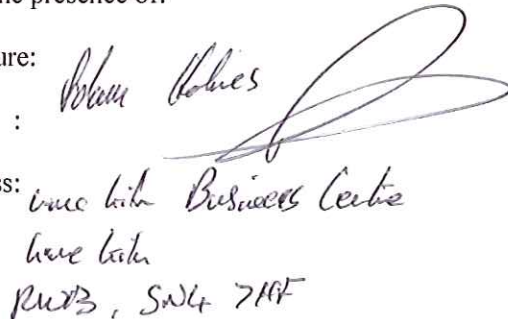 he presence of:
ure:
Holmes
:
ss: Lime Kiln Business Centre
Lime Kiln
RWB, SN4 7HF